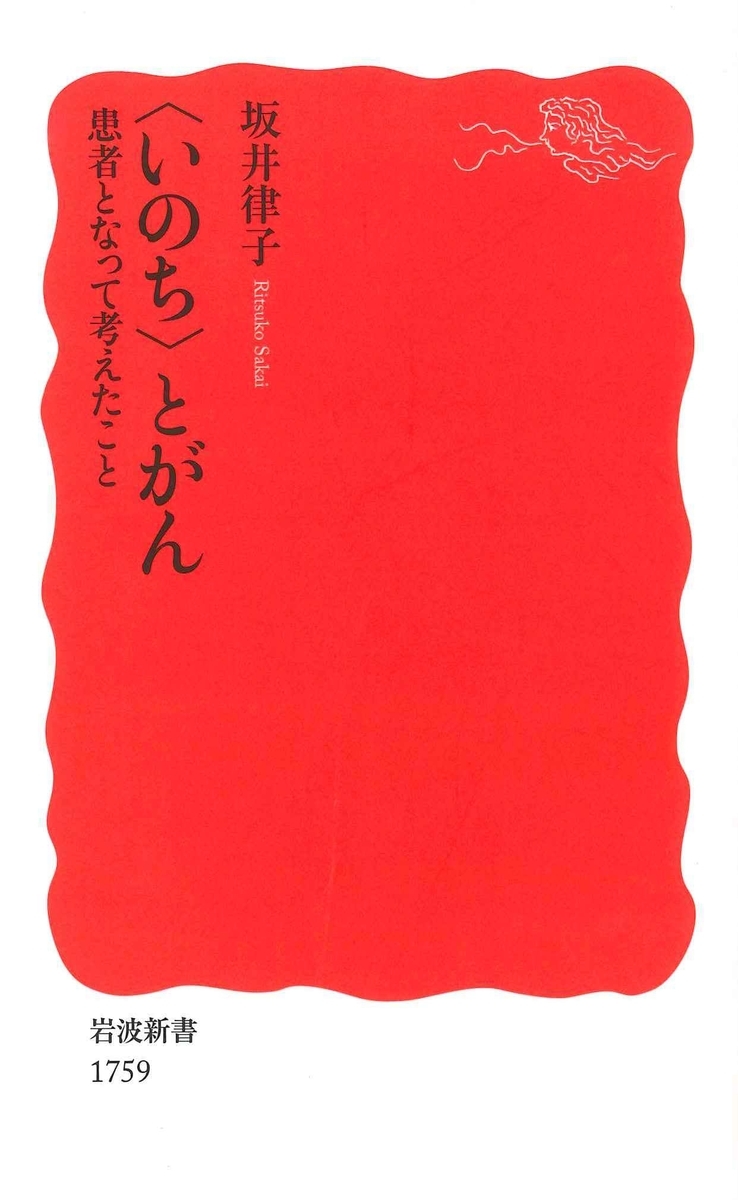 坂井律子
Ritsuko Sakai
〈いのち〉とがん
患者となって考えたこと
岩波新書
1759